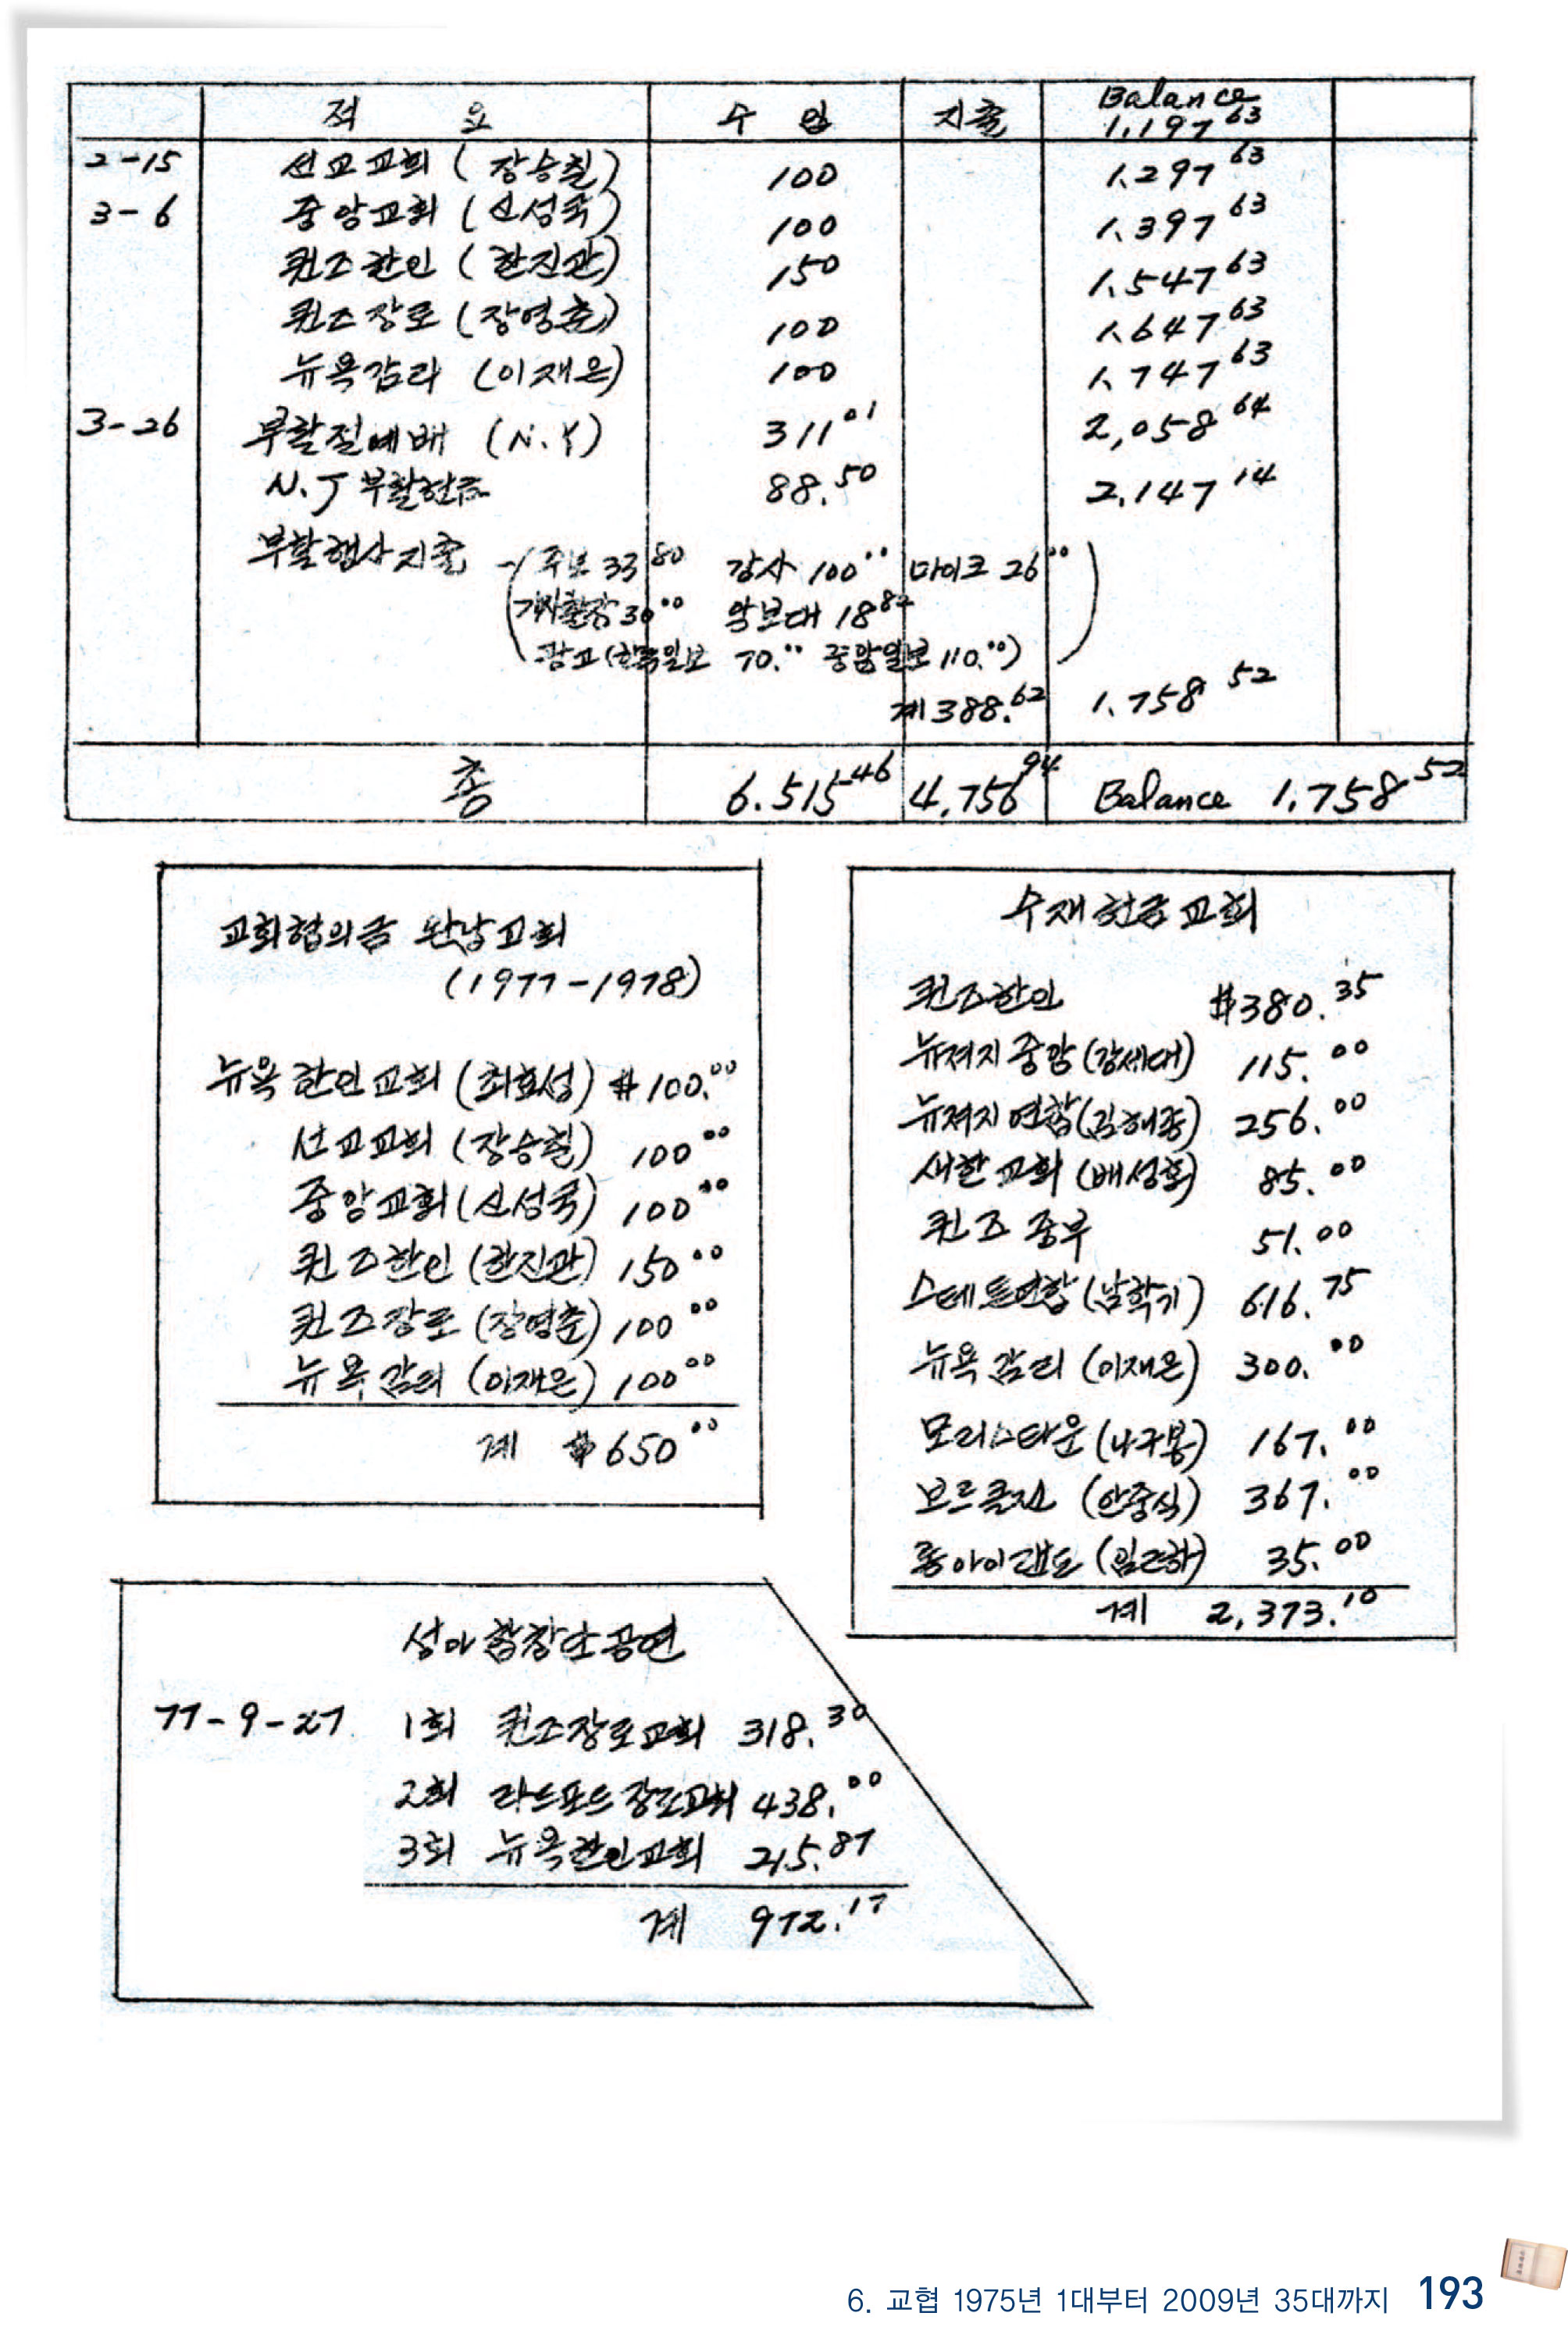 적 요 수 입 지출 Balance
1.197 63
2-15 선교교회 (장승칠) 100 1.297 63
3-6 중앙교회 (신성국) 100 1.397 63
퀸즈한인 (한진관) 150 1.547 63
퀸즈장로 (장영춘) 100 1.647 63
뉴욕감리 (이재은) 100 1.747 63
3-26 부활절예배 (N.Y) 311 01 2,058 64
N.J 부활헌금 88.50 2.147 14
부활행사지출 - (주보 33 80 강사 100 00 마이크 26 00)
30 00 악보대 18 82
광고 (한국일보 70.00 중앙일보 110.00)
계 388.62 1.758 52
총 6.515 46 4,756 94 Balance 1,758 52
교회협의금 완납교회
(1977-1978)
뉴욕한인교회 (최효성) $100.00
선교교회 (장승칠) 100 00
중앙교회 (신성국) 100 00
퀸즈한인 (한진관) 150 00
퀸즈장로 (장영춘) 100 00
뉴욕감리 (이재은) 100 00
계 $650 00
수재헌금교회
퀸즈한인 $380.35
뉴져지중앙 (강세대) 115.00
뉴져지연합 (김해종) 256.00
새한교회 (배성호) 85.00
퀸즈 중부 51.00
스테튼연합 (남학기) 616.75
뉴욕감리 (이재은) 300.00
모리스타운 (나구용) 167.00
브르클린 (안중식) 367.00
롱아이랜드 35.00
계 2,373.10
성아합창단공연
77-9-27 1회 퀸즈장로교회 318.30
2회 라드포드장로교회 438.00
3회 뉴욕한인교회 215.87
계 972.17
6. 교협 1975년 1대부터 2009년 35대까지 193